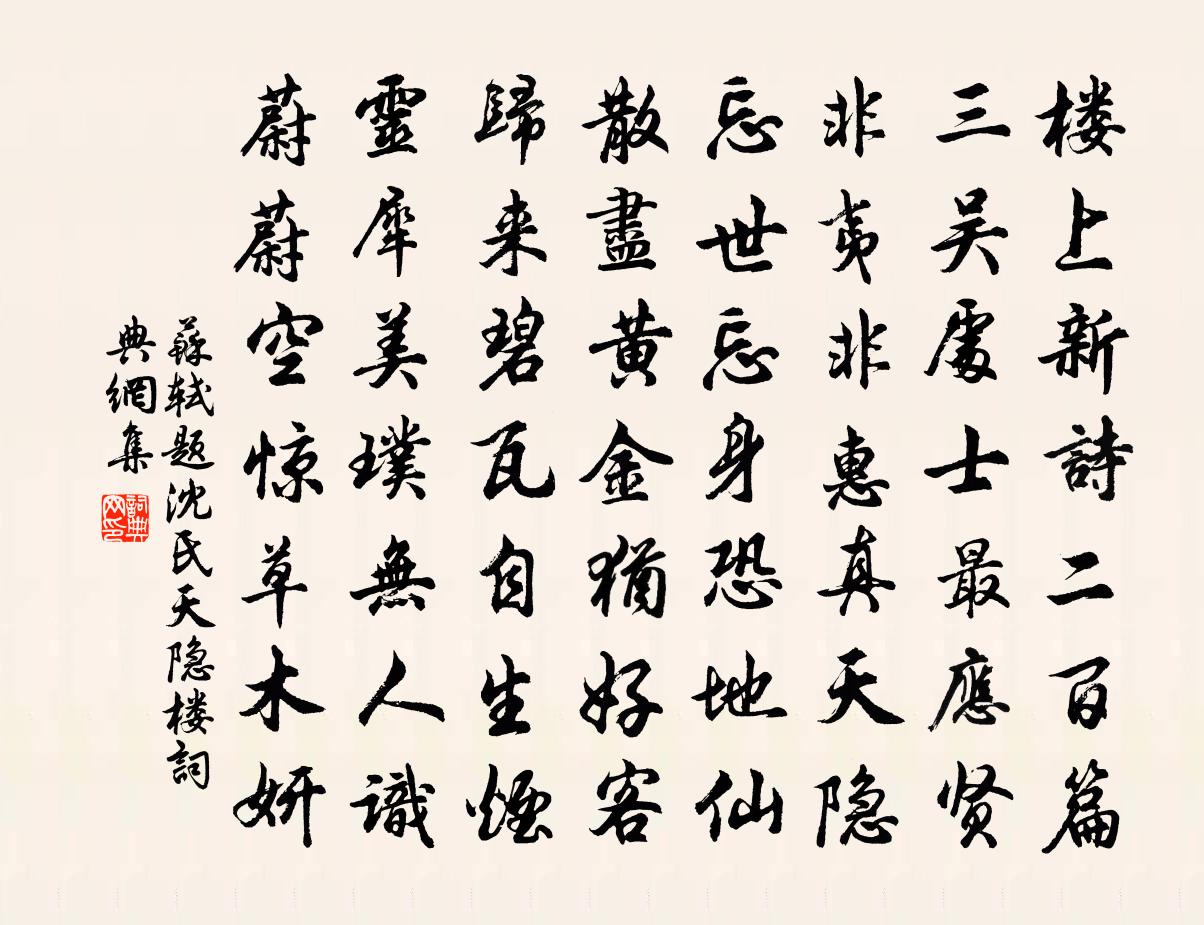 楼上新詩二百篇
三吴處士最應贤
非夷非惠真天隐
忘世忘身恐地仙
散盡黄金猶好客
歸来碧瓦自生煙
靈犀美璞無人識
蔚蔚空惊草木妍
蘇轼题沈氏天隐楼詞
典網集
詞典网印